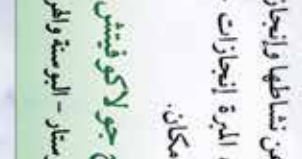 من نشاطها وإنجاز
المبرة إنجازات
مكان.
جولاكوفيتش
ستار - البوسنة والهر